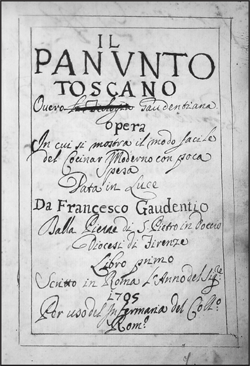 IL
PANVNTO
TOSCANO
Overo Gaudentiana
opera
In cui si mostra il modo facile
del Cocinar Moderno con poca
Spesa
Data in Luce
Da Francesco Gaudentio
Dalla di S. Pietro in
Diocesi di Firenze
Libro primo
Scritto in Roma l'Anno del
1705
Per uso del Infermaria del Coll.o
Rom.o